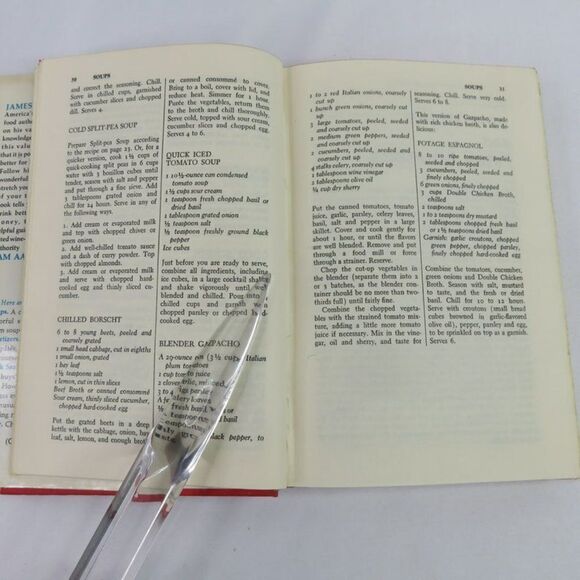 30 SOUPS
and correct the seasoning. Chill.
Serve in chilled cups, garnished
with cucumber slices and chopped
dill. Serves 4.
COLD SPLIT-PEA SOUP
Prepare Split-pea Soup according
to the recipe on page 23. Or, for a
quicker version, cook 1½ cups of
quick-cooking split peas in 6 cups
water with 3 bouillon cubes until
tender, season with salt and pepper
and put through a fine sieve. Add
2 tablespoons grated onion and
chill for 24 hours. Serve in any of
the following ways.
1. Add cream or evaporated milk
and top with chopped chives or
green onion.
2. Add well-chilled tomato sauce
and a dash of curry powder. Top
with chopped almonds.
3. Add cream or evaporated milk
and serve with chopped hard-
cooked egg and thinly sliced cu-
cumber.
CHILLED BORSCHT
6 to 8 young beets, peeled and
coarsely grated
1 small head cabbage, cut in eighths
1 small onion, grated
1 bay leaf
1½ teaspoons salt
1 lemon, cut in thin slices
Beef Broth or canned consommé
Sour cream, thinly sliced cucumber,
chopped hard-cooked egg
Put the grated beets in a deep
kettle with the cabbage, onion, bay
leaf, salt, lemon, and enough broth
or canned consommé to cover.
Bring to a boil, cover with lid, and
reduce heat. Simmer for 1 hour.
Purée the vegetables, return them
to the broth and chill thoroughly.
Serve cold, topped with sour cream,
cucumber slices and chopped egg.
Serves 4 to 6.
QUICK ICED
TOMATO SOUP
1 10½-ounce can condensed
tomato soup
1½ cups sour cream
1 teaspoon fresh chopped basil or
dried basil
1 tablespoon grated onion
½ teaspoon salt
½ teaspoon freshly ground black
pepper
Ice cubes
Just before you are ready to serve,
combine all ingredients, including
ice cubes, in a large cocktail shaker
and shake vigorously until well
blended and chilled. Pour into
chilled cups and garnish with
chopped parsley or chopped hard-
cooked egg.
BLENDER GAZPACHO
A 29-ounce can (3½ cups) Italian
plum tomatoes
1 cup tomato juice
2 cloves garlic, minced
parsley
celery leaves
fresh basil or
dried basil
black pepper, to
SOUPS 31
1 to 2 red Italian onions, coarsely
cut up
1 bunch green onions, coarsely
cut up
large tomatoes, peeled, seeded
and coarsely cut up
2 medium green peppers, seeded
and coarsely cut up
cucumbers, peeled, seeded and
coarsely cut up
stalks celery, coarsely cut up
tablespoon wine vinegar
tablespoons olive oil
¼ cup dry sherry
Put the canned tomatoes, tomato
juice, garlic, parsley, celery leaves,
basil, salt and pepper in a large
skillet. Cover and cook gently for
about 1 hour, or until the flavors
are well blended. Remove and put
through a food mill or force
through a strainer. Reserve.
Chop the cut-up vegetables in
the blender (separate them into 2
or 3 batches, as the blender con-
tainer should be no more than two-
thirds full) until fairly fine.
Combine the chopped vegetables
with the strained tomato mixture,
adding a little more tomato
juice if necessary. Mix in the vine-
gar, oil and sherry, and taste for
seasoning. Chill. Serve very cold.
Serves 6 to 8.
This version of Gazpacho, made
with rich chicken broth, is also de-
licious:
POTAGE ESPAGNOL
8 to 10 ripe tomatoes, peeled,
seeded and chopped
3 cucumbers, peeled, seeded and
finely chopped
6 green onions, finely chopped
Double Chicken Broth,
chilled
2 teaspoons salt
1 to 2 teaspoons dry mustard
chopped fresh basil or
1½ teaspoons dried basil
Garnish: garlic croutons, chopped
green pepper, chopped parsley,
finely chopped onion
Combine the tomatoes, cucumber,
green onions and Double Chicken
Broth. Season with salt, mustard
and the fresh or dried basil.
Chill for 10 to 12 hours.
Serve with croutons (small bread
cubes browned in garlic-flavored
olive oil), pepper, parsley and egg,
to be sprinkled on top of the soup.
Serves 6.
JAMES